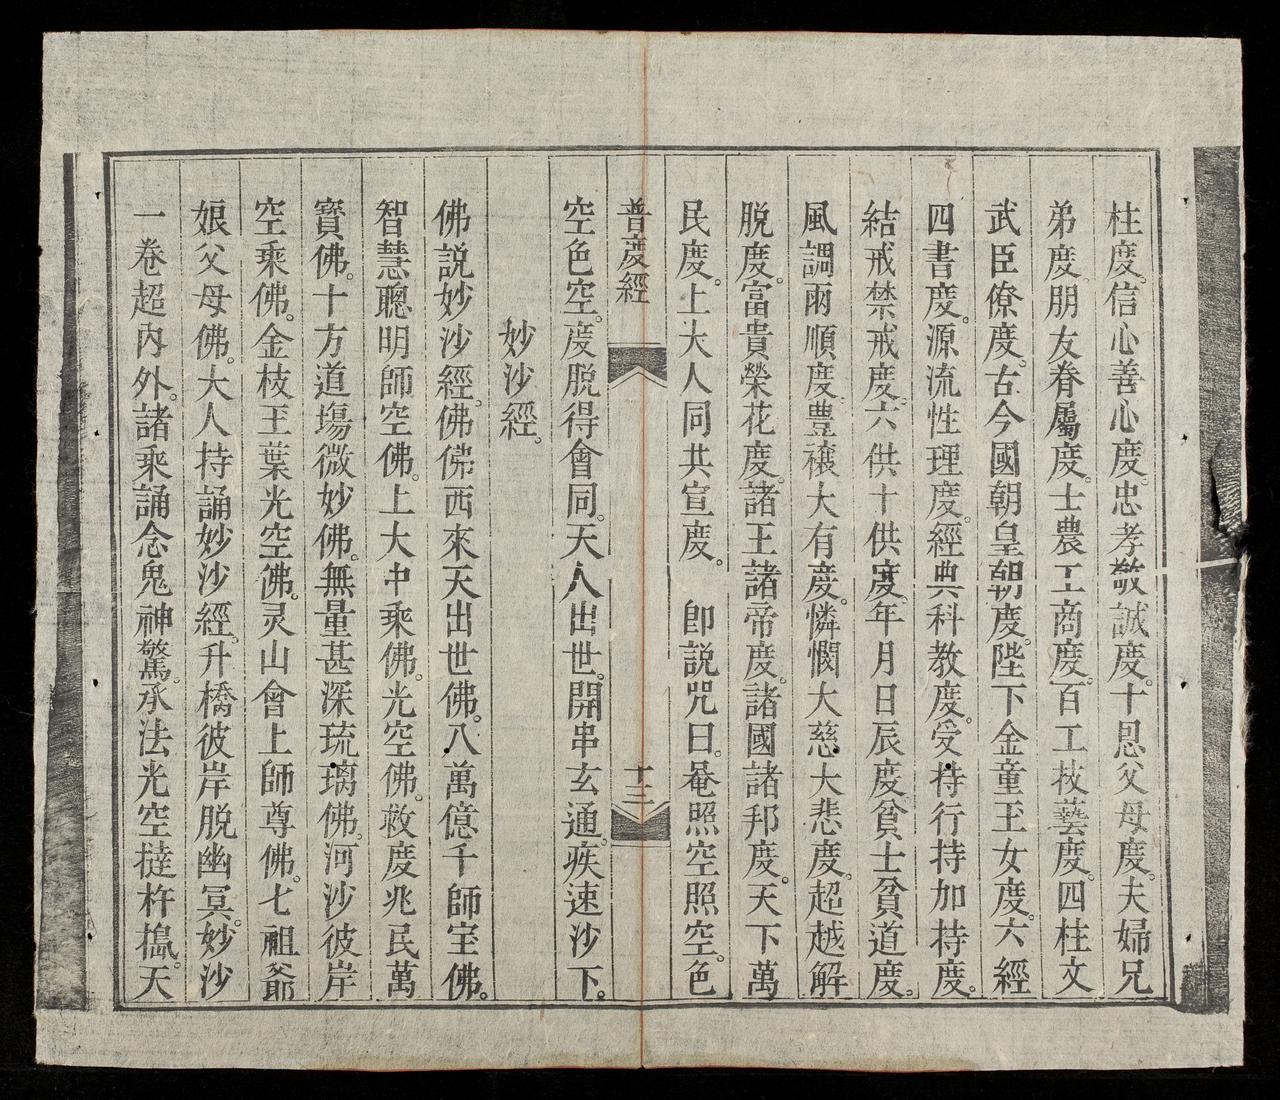 柱度。信心善心度。忠孝敬誠度。十恩父母度。夫婦兄
弟度。朋友眷屬度。士農工商度。百工技藝度。四柱文
武臣僚度。古今國朝皇朝度。陛下金童王女度。六經
四書度。源流性理度。經典科教度。受持行持加持度。
結戒禁戒度。六供十供度。年月日辰度。貧士貧道度。
風調雨順度。豊穰大有度。憐憫大慈大悲度。超越解
脱度。富貴榮花度。諸王諸帝度。諸國諸邦度。天下萬
民度。上大人同共宣度。　即説咒曰。菴照空照空。色
普度經　十三
空色空。度脱得會同。天人出世。開串玄通。疾速沙下。
妙沙經。
佛説妙沙經。佛佛西來天出世佛。八萬億千師室佛。
智慧聰明師空佛。上大中乘佛。光空佛。救度兆民萬
寳佛。十方道塲微妙佛。無量甚深琉璃佛。河沙彼岸
空乘佛。金枝王葉光空佛。灵山會上師尊佛。七祖爺
娘父母佛。大人持誦妙沙經。升橋彼岸脱幽冥。妙沙
一卷超内外。諸乘誦念鬼神驚。承法光空撻杵搗。天